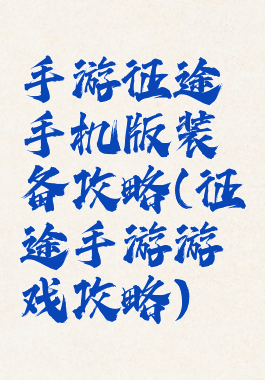 手游征途
手机版装
备攻略(征
途手游游
戏攻略)